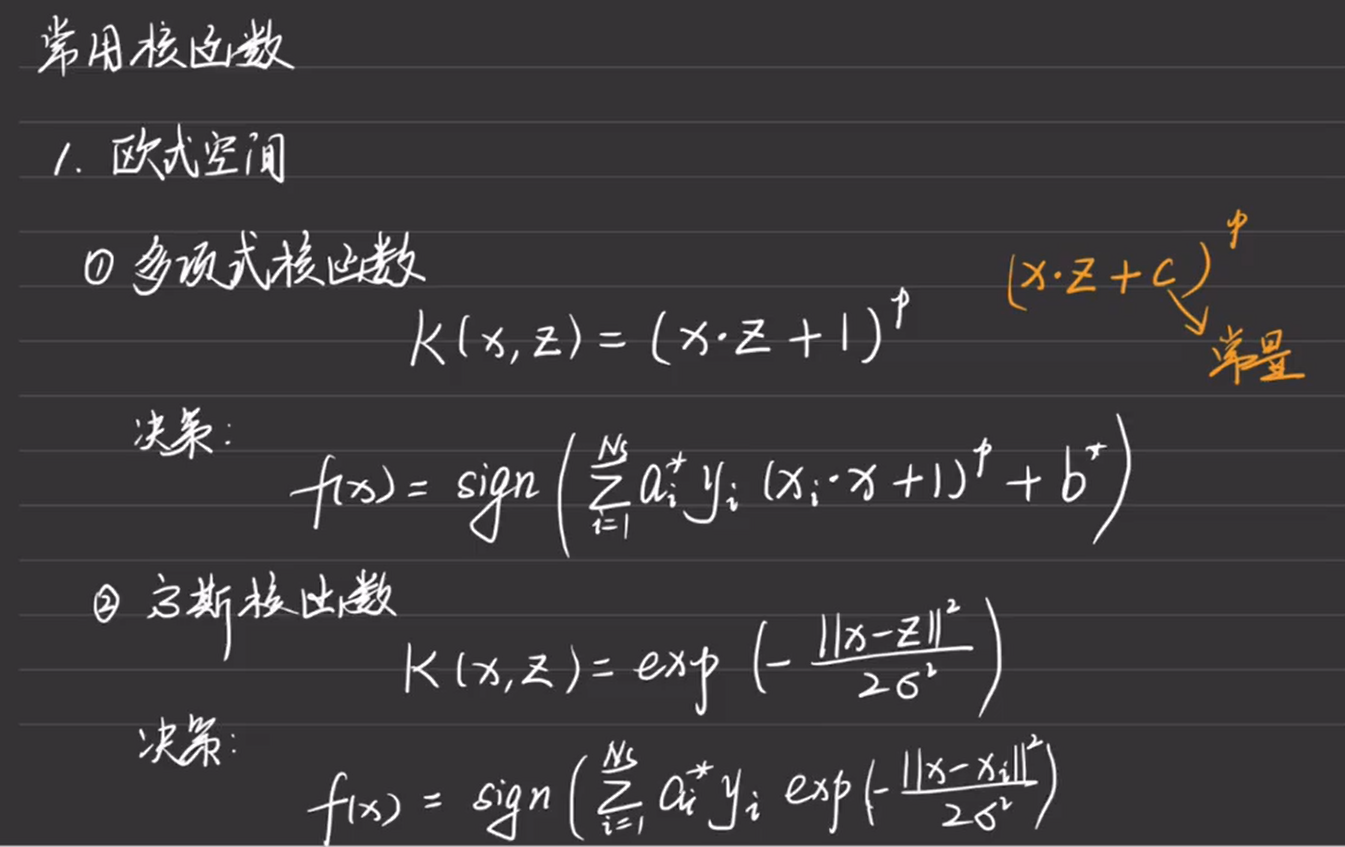 常用核函数
1. 欧式空间
① 多项式核函数
K(x,z) = (x·z+1)^p
(x·z+c)^p
常量
决策:
f(x) = sign(∑_{i=1}^{Ns} a_i^* y_i (x_i·x+1)^p + b^*)
② 高斯核函数
K(x,z) = exp(-||x-z||²/2σ²)
决策:
f(x) = sign(∑_{i=1}^{Ns} a_i^* y_i exp(-||x-x_i||²/2σ²)